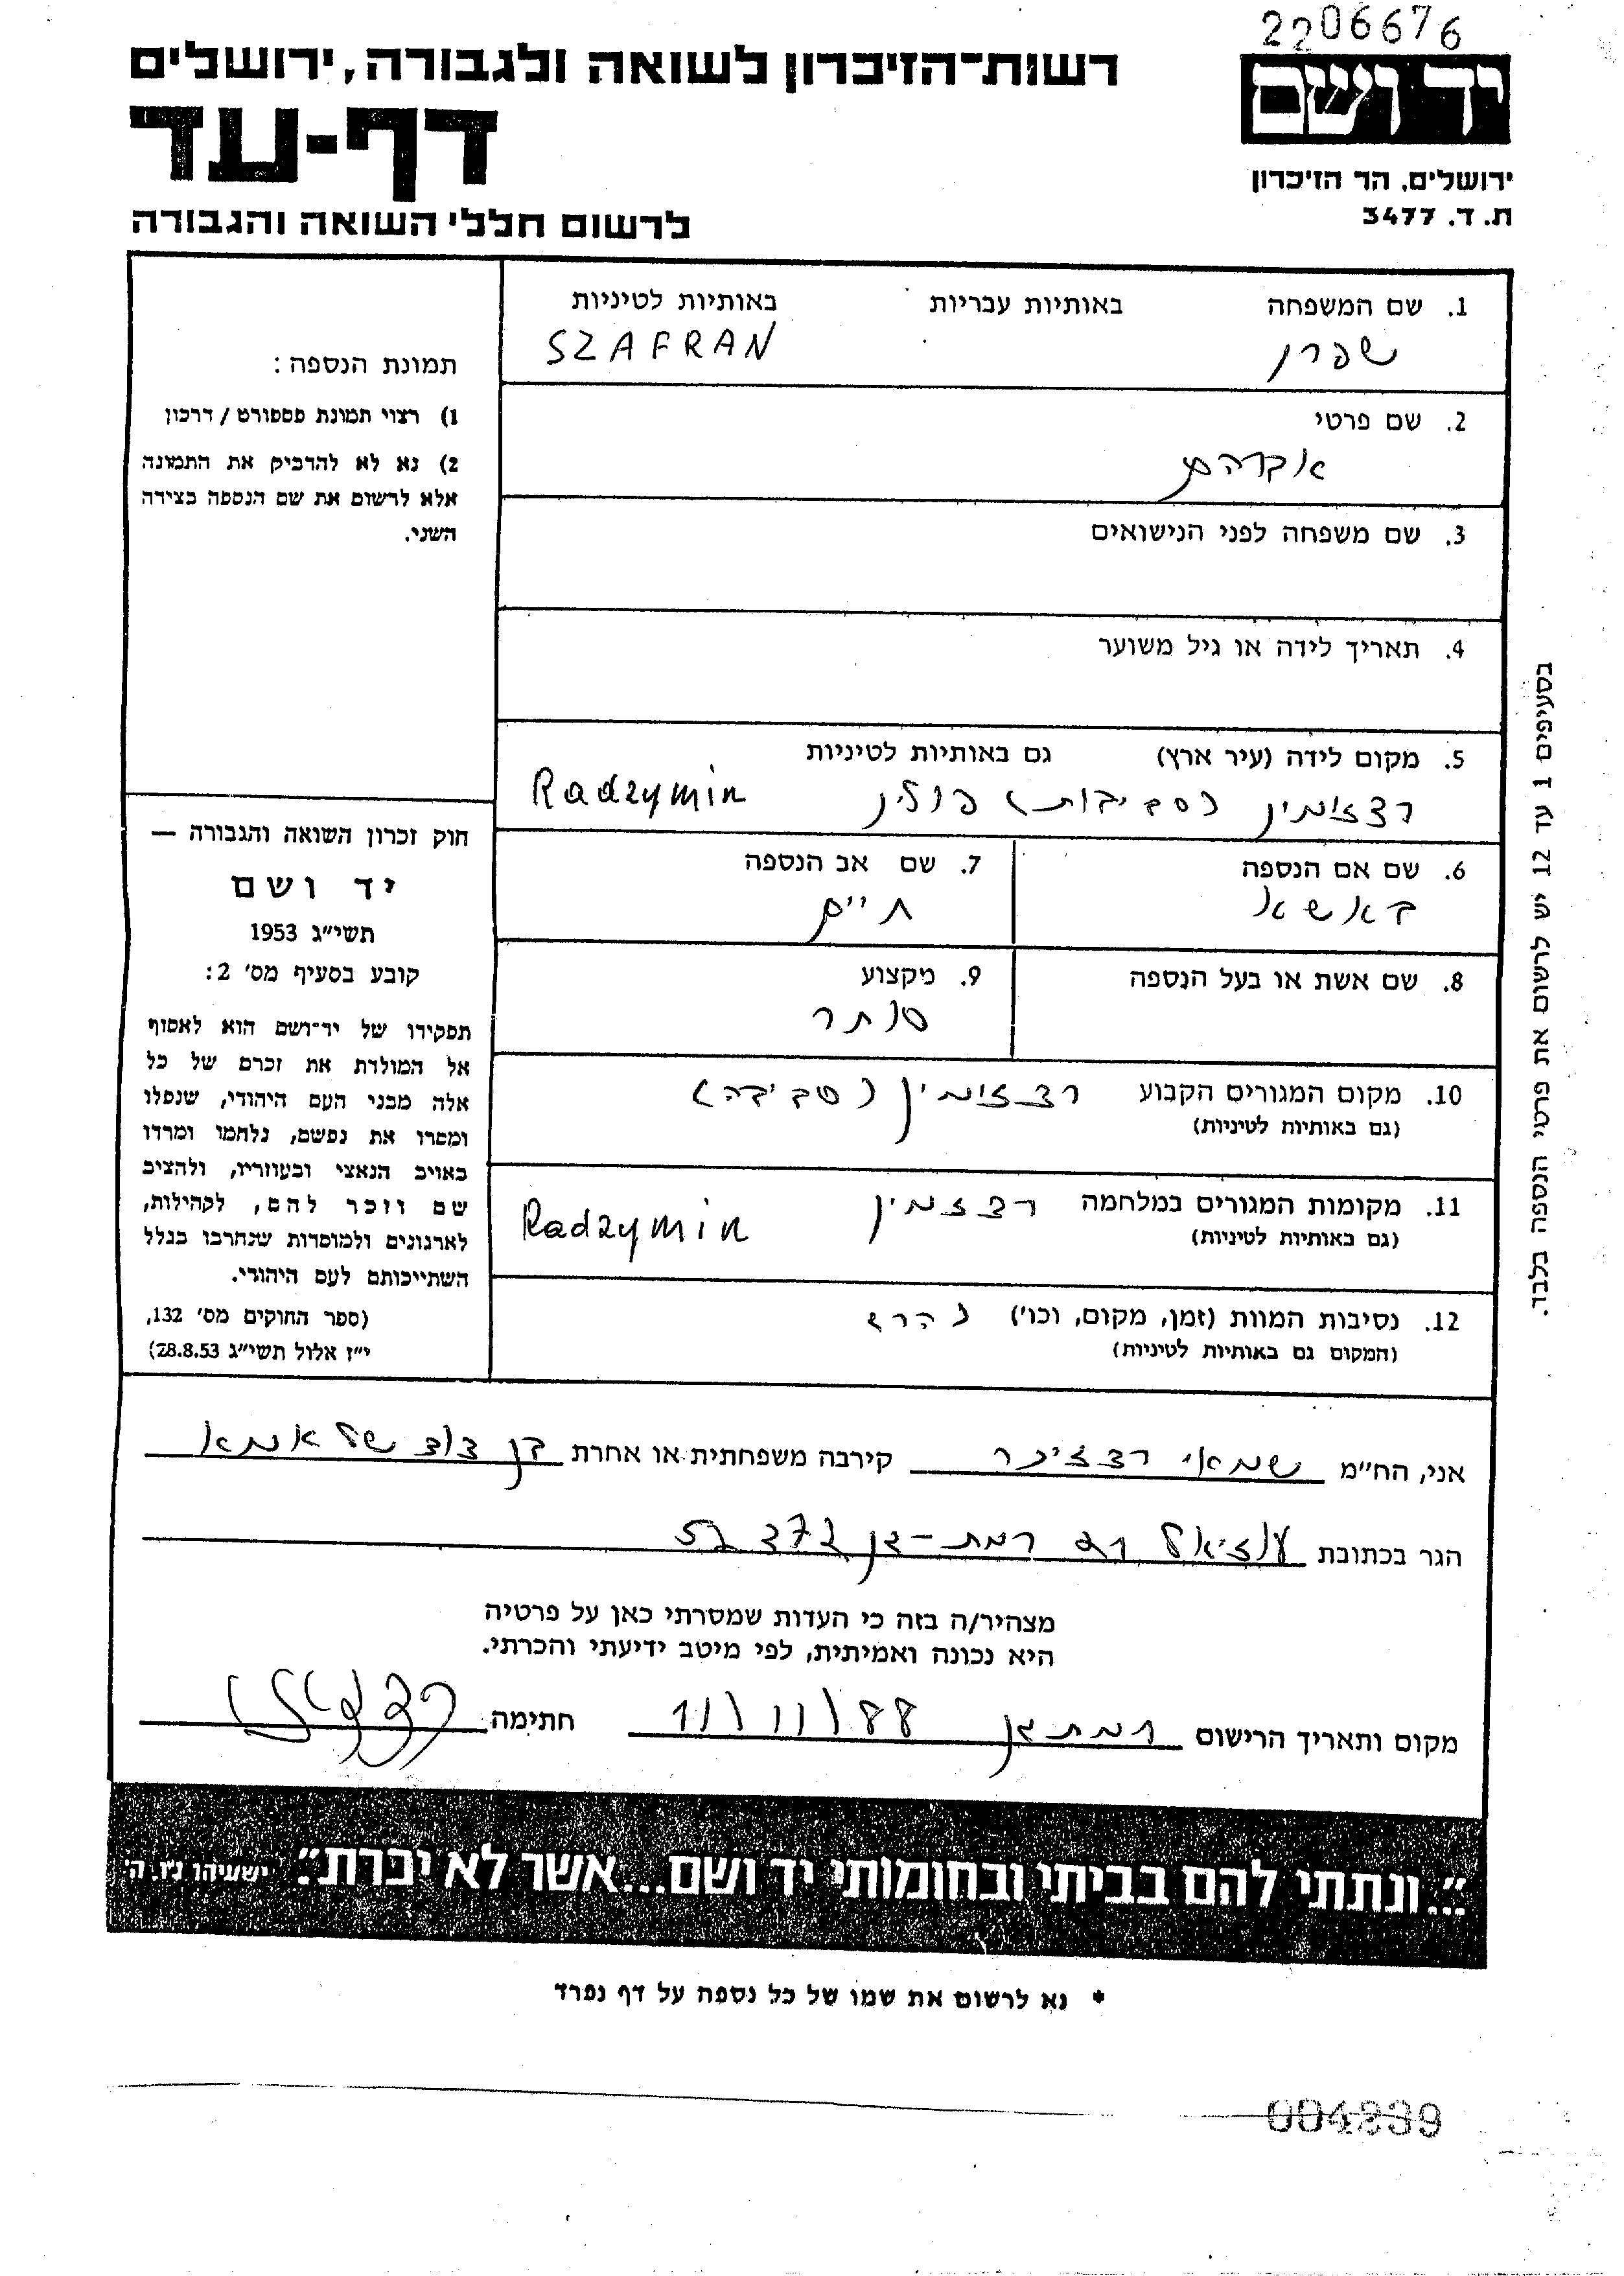 2206676
רשות־הזיכרון לשואה ולגבורה, ירושלים
יד ושם
דף-עד
ירושלים, הר הזיכרון
ת. ד. 3477
לרשום חללי השואה והגבורה
1. שם המשפחה באותיות עבריות באותיות לטיניות
שפרן SZAFRAN
2. שם פרטי
אברהם
3. שם משפחה לפני הנישואים
4. תאריך לידה או גיל משוער
5. מקום לידה (עיר ארץ) גם באותיות לטיניות
רצזימין (סביבות) פולין Radzymin
6. שם אם הנספה 7. שם אב הנספה
באשא חיים
8. שם אשת או בעל הנספה 9. מקצוע
סוחר
10. מקום המגורים הקבוע רצזימין (סביבה)
(גם באותיות לטיניות)
11. מקומות המגורים במלחמה רצזמין Radzymin
(גם באותיות לטיניות)
12. נסיבות המוות (זמן, מקום, וכו') נהרג
(המקום גם באותיות לטיניות)
תמונת הנספה:
1) רצוי תמונת פספורט / דרכון
2) נא לא להדביק את התמונה
אלא לרשום את שם הנספה בצידה
השני.
חוק זכרון השואה והגבורה —
יד ושם
תשי״ג 1953
קובע בסעיף מס' 2:
תפקידו של יד־ושם הוא לאסוף
אל המולדת את זכרם של כל
אלה מבני העם היהודי, שנפלו
ומסרו את נפשם, נלחמו ומרדו
באויב הנאצי ובעוזריו, ולהציב
שם וזכר להם, לקהילות,
לארגונים ולמוסדות שנחרבו בגלל
השתייכותם לעם היהודי.
(ספר החוקים מס' 132,
י״ז אלול תשי״ג 28.8.53)
בסעיפים 1 עד 12 יש לרשום את פרטי הנספה בלבד.
אני, הח״מ שמאי רצזינר קירבה משפחתית או אחרת בן דוד של אמא
הגר בכתובת עוזיאל רמת-גן 52
מצהיר/ה בזה כי העדות שמסרתי כאן על פרטיה
היא נכונה ואמיתית, לפי מיטב ידיעתי והכרתי.
מקום ותאריך הרישום רמת גן 1/11/88 חתימה
״...ונתתי להם בביתי ובחומותי יד ושם...אשר לא יכרת״. ישעיהו נ״ו. ה'
* נא לרשום את שמו של כל נספה על דף נפרד
004239